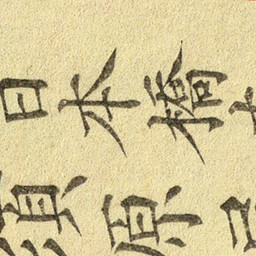 日本橋
須原